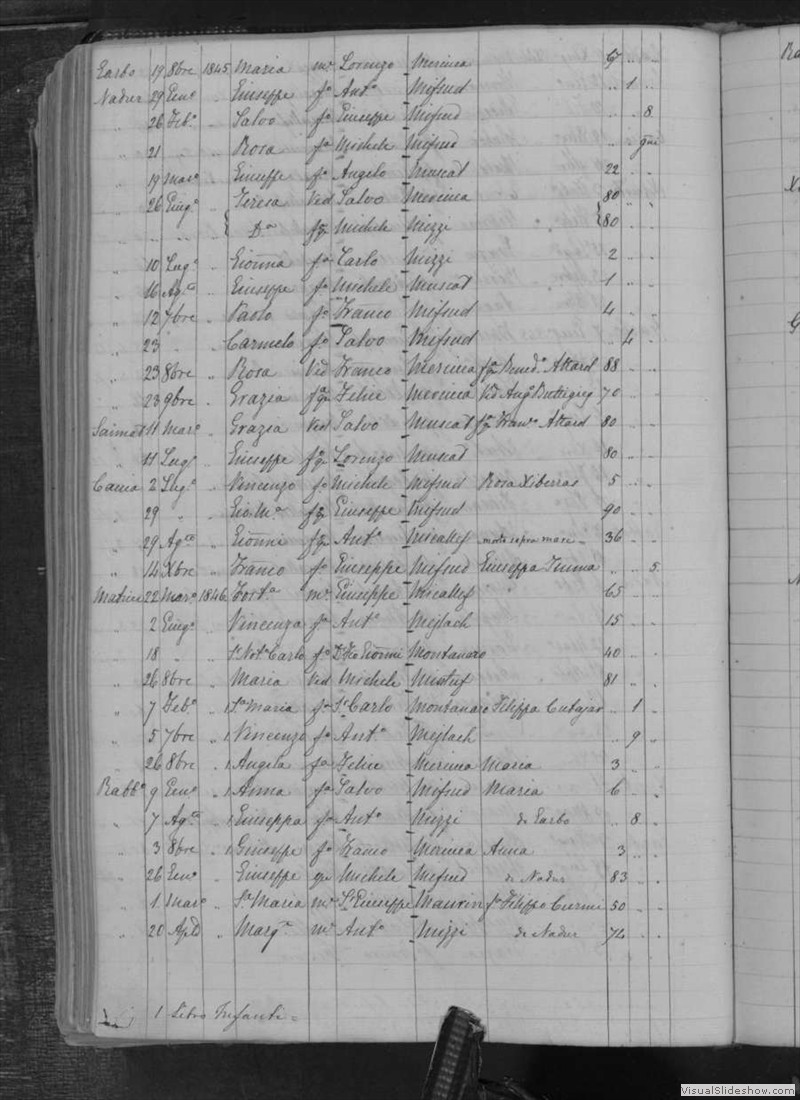 Garbo 19 8bre 1845 Maria mᵉ Lorenzo Mercieca 67 .. ..
Nadur 29 Genº .. Giuseppe fº Antº Mifsud .. 1 ..
.. 26 Febº .. Salvo fº Giuseppe Mifsud .. .. 8
.. 21 .. .. Rosa fª Michele Mifsud .. ..
.. 19 Marº .. Giuseppe fº Angelo Muscat 22 .. ..
.. 26 Giugº .. Teresa Ved Salvo Mercieca 80 .. ..
.. .. .. Dª Michele Mizzi 80 .. ..
.. 10 Lugº .. Gionna fª Carlo Mizzi 2 .. ..
.. 16 Agtº .. Giuseppe fº Michele Muscat 1 .. ..
.. 12 7bre .. Paolo fº Franco Mifsud 4 .. ..
.. 23 .. .. Carmelo fº Salvo Mifsud .. 4 ..
.. 23 8bre .. Rosa Ved Franco Mercieca Bened. Attard 88 .. ..
.. 23 9bre .. Grazia Felice Mercieca Ved Angº Buttigieg 70 .. ..
Sannat 11 Marº .. Grazia Ved Salvo Muscat Attard 80 .. ..
.. 11 Lugº .. Giuseppe Lorenzo Muscat 80 .. ..
Caccia 2 Lugº .. Vincenzo fº Michele Mifsud Rosa Xiberras 5 .. ..
.. 29 .. .. Gio Mª Giuseppe Mifsud 90 .. ..
.. 29 Agtº .. Gionni Antº Micallef morto sopra mare 36 .. ..
.. 14 Xbre .. Franco fº Giuseppe Mifsud Giuseppa .. .. 5
Matrice 22 Marº 1846 Fortª mᵉ Giuseppe Micallef .. 65 .. ..
.. 2 Giugº .. Vincenza fª Antº Mejlach 15 .. ..
.. 18 .. .. Sr Notº Carlo fº Gionni Montanaro 40 .. ..
.. 26 8bre .. Maria Ved Michele 81 .. ..
.. 7 Febº .. Sª Maria fª Sr Carlo Montanaro Filippa Cutajar .. 1 ..
.. 5 7bre .. Vincenzo fº Antº Mejlach .. 9 ..
.. 26 8bre .. Angela fª Felice Mercieca Maria 3 .. ..
Rabbº 9 Genº .. Anna fª Salvo Mifsud Maria 6 .. ..
.. 7 Agtº .. Giuseppa fª Antº Mizzi de Garbo .. 8 ..
.. 3 8bre .. Giuseppe fº Franco Mercieca Anna 3 .. ..
.. 26 Genº .. Giuseppe Michele Mifsud de Nadur 83 .. ..
.. 1 Marº .. Sª Maria mᵉ Sr Giuseppe fª Filippo Curmi 50 .. ..
.. 20 Aple .. Margª mᵉ Antº Mizzi de Nadur 74 .. ..
1 Libro Infanti =
VisualSlideshow.com